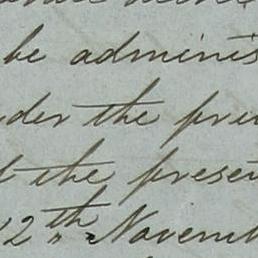 be adminis
der the pri
the presen
12th Novemb